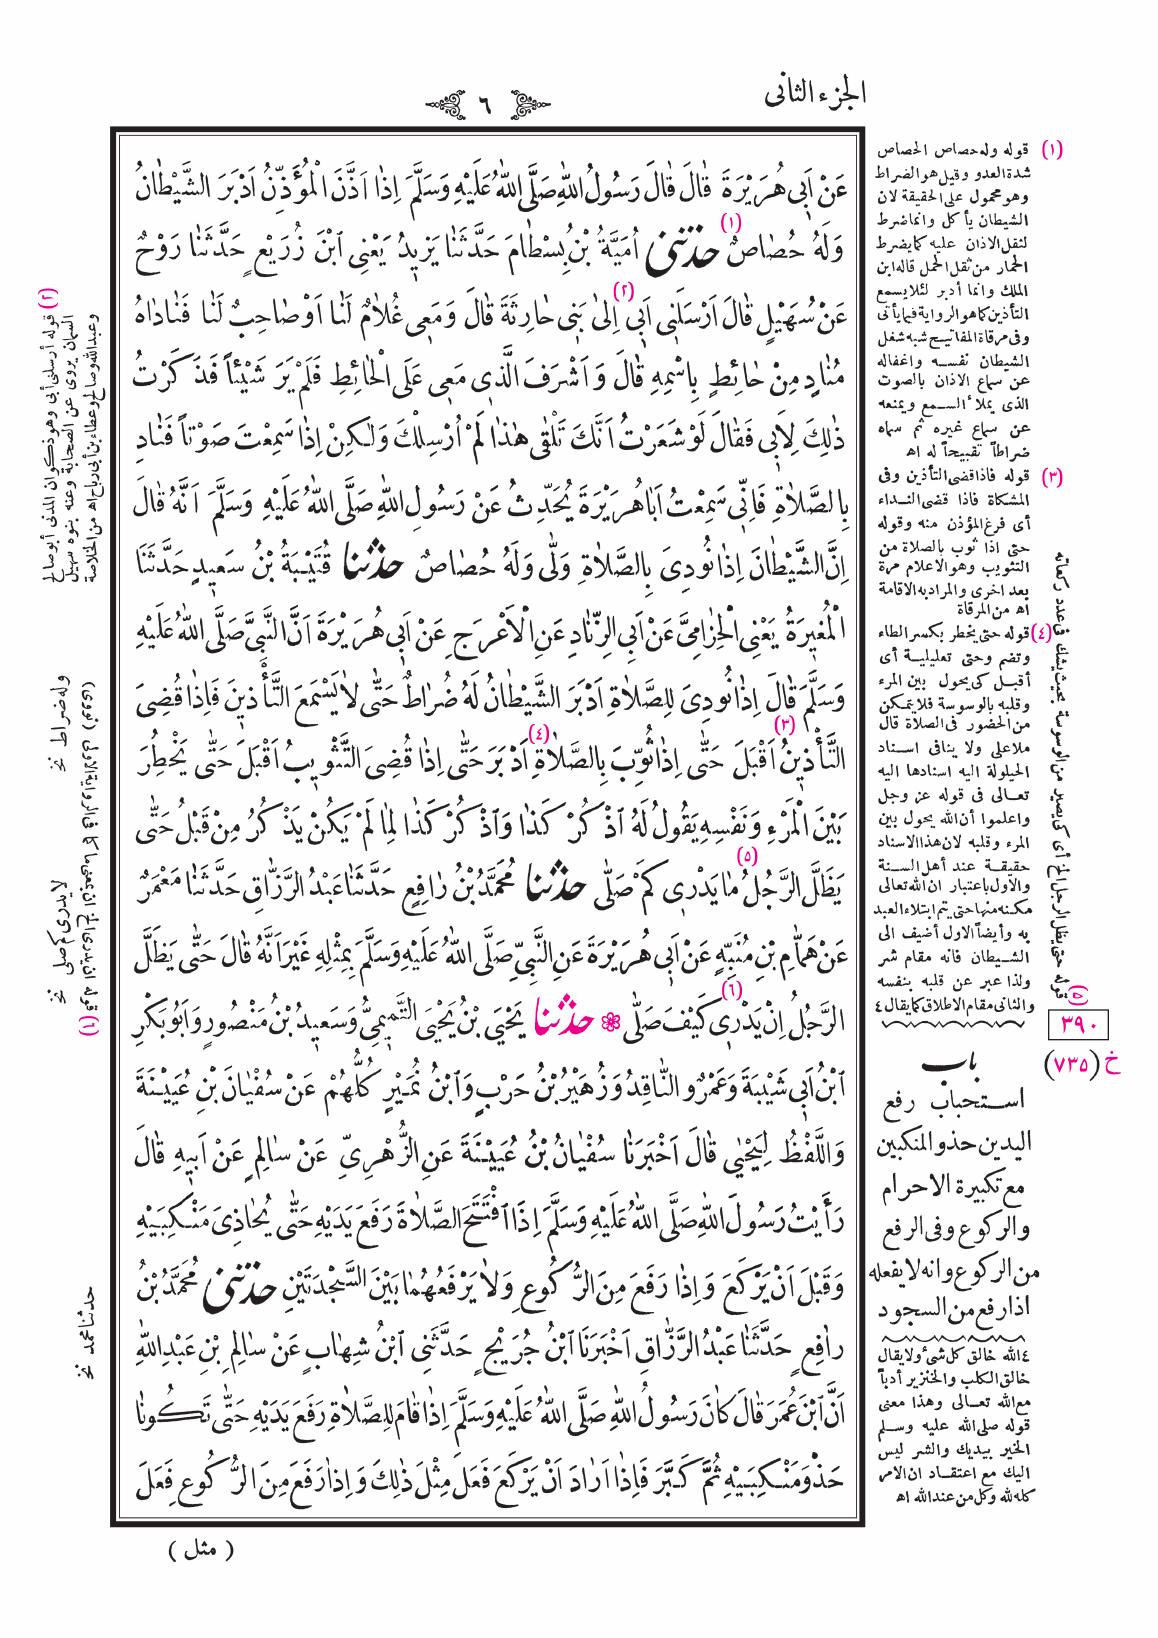 الجزء الثانى
٦
عَنْ اَبِي هُرَيْرَةَ قَالَ قَالَ رَسُولُ اللهِ صَلَّى اللهُ عَلَيْهِ وَسَلَّمَ اِذَا اَذَّنَ الْمُؤَذِّنُ اَدْبَرَ الشَّيْطَانُ
وَلَهُ حُصَاصٌ (١) حَدَّثَنِى اُمَيَّةُ بْنُ بِسْطَامَ حَدَّثَنَا يَزِيدُ يَعْنِى ابْنَ زُرَيْعٍ حَدَّثَنَا رَوْحٌ
عَنْ سُهَيْلٍ قَالَ اَرْسَلَنِى اَبِى (٢) اِلَى بَنِى حَارِثَةَ قَالَ وَمَعِى غُلَامٌ لَنَا اَوْ صَاحِبٌ لَنَا فَنَادَاهُ
مُنَادٍ مِنْ حَائِطٍ بِاسْمِهِ قَالَ وَاَشْرَفَ الَّذِى مَعِى عَلَى الْحَائِطِ فَلَمْ يَرَ شَيْئاً فَذَكَرْتُ
ذٰلِكَ لِاَبِى فَقَالَ لَوْ شَعَرْتُ اَنَّكَ تَلْقَى هٰذَا لَمْ اُرْسِلْكَ وَلٰكِنْ اِذَا سَمِعْتَ صَوْتاً فَنَادِ
بِالصَّلَاةِ فَاِنِّى سَمِعْتُ اَبَا هُرَيْرَةَ يُحَدِّثُ عَنْ رَسُولِ اللهِ صَلَّى اللهُ عَلَيْهِ وَسَلَّمَ اَنَّهُ قَالَ
اِنَّ الشَّيْطَانَ اِذَا نُودِىَ بِالصَّلَاةِ وَلَّى وَلَهُ حُصَاصٌ حَدَّثَنَا قُتَيْبَةُ بْنُ سَعِيدٍ حَدَّثَنَا
الْمُغِيرَةُ يَعْنِى الْحِزَامِىَّ عَنْ اَبِى الزِّنَادِ عَنِ الْاَعْرَجِ عَنْ اَبِى هُرَيْرَةَ اَنَّ النَّبِىَّ صَلَّى اللهُ عَلَيْهِ
وَسَلَّمَ قَالَ اِذَا نُودِىَ لِلصَّلَاةِ اَدْبَرَ الشَّيْطَانُ لَهُ ضُرَاطٌ حَتَّى لَا يَسْمَعَ التَّأْذِينَ فَاِذَا قُضِىَ
التَّأْذِينُ (٣) اَقْبَلَ حَتَّى اِذَا ثُوِّبَ بِالصَّلَاةِ (٤) اَدْبَرَ حَتَّى اِذَا قُضِىَ التَّثْوِيبُ اَقْبَلَ حَتَّى يَخْطِرَ
بَيْنَ الْمَرْءِ وَنَفْسِهِ يَقُولُ لَهُ اذْكُرْ كَذَا وَاذْكُرْ كَذَا لِمَا لَمْ يَكُنْ يَذْكُرُ مِنْ قَبْلُ حَتَّى
يَظَلَّ الرَّجُلُ (٥) مَا يَدْرِى كَمْ صَلَّى حَدَّثَنَا مُحَمَّدُ بْنُ رَافِعٍ حَدَّثَنَا عَبْدُ الرَّزَّاقِ حَدَّثَنَا مَعْمَرٌ
عَنْ هَمَّامِ بْنِ مُنَبِّهٍ عَنْ اَبِى هُرَيْرَةَ عَنِ النَّبِىِّ صَلَّى اللهُ عَلَيْهِ وَسَلَّمَ بِمِثْلِهِ غَيْرَ اَنَّهُ قَالَ حَتَّى يَظَلَّ
الرَّجُلُ اِنْ يَدْرِى (٦) كَيْفَ صَلَّى حَدَّثَنَا يَحْيَى بْنُ يَحْيَى التَّمِيمِىُّ وَسَعِيدُ بْنُ مَنْصُورٍ وَاَبُو بَكْرِ
ابْنُ اَبِى شَيْبَةَ وَعَمْرٌو النَّاقِدُ وَزُهَيْرُ بْنُ حَرْبٍ وَابْنُ نُمَيْرٍ كُلُّهُمْ عَنْ سُفْيَانَ بْنِ عُيَيْنَةَ
وَاللَّفْظُ لِيَحْيَى قَالَ اَخْبَرَنَا سُفْيَانُ بْنُ عُيَيْنَةَ عَنِ الزُّهْرِىِّ عَنْ سَالِمٍ عَنْ اَبِيهِ قَالَ
رَأَيْتُ رَسُولَ اللهِ صَلَّى اللهُ عَلَيْهِ وَسَلَّمَ اِذَا افْتَتَحَ الصَّلَاةَ رَفَعَ يَدَيْهِ حَتَّى يُحَاذِىَ مَنْكِبَيْهِ
وَقَبْلَ اَنْ يَرْكَعَ وَاِذَا رَفَعَ مِنَ الرُّكُوعِ وَلَا يَرْفَعُهُمَا بَيْنَ السَّجْدَتَيْنِ حَدَّثَنِى مُحَمَّدُ بْنُ
رَافِعٍ حَدَّثَنَا عَبْدُ الرَّزَّاقِ اَخْبَرَنَا ابْنُ جُرَيْجٍ حَدَّثَنِى ابْنُ شِهَابٍ عَنْ سَالِمِ بْنِ عَبْدِ اللهِ
اَنَّ ابْنَ عُمَرَ قَالَ كَانَ رَسُولُ اللهِ صَلَّى اللهُ عَلَيْهِ وَسَلَّمَ اِذَا قَامَ لِلصَّلَاةِ رَفَعَ يَدَيْهِ حَتَّى تَكُونَا
حَذْوَ مَنْكِبَيْهِ ثُمَّ كَبَّرَ فَاِذَا اَرَادَ اَنْ يَرْكَعَ فَعَلَ مِثْلَ ذٰلِكَ وَاِذَا رَفَعَ مِنَ الرُّكُوعِ فَعَلَ
( مثل )
(١) قوله وله حصاص الحصاص
شدة العدو وقيل هو الضراط
وهو محمول على الحقيقة لان
الشيطان يأكل وانما ضرط
لثقل الاذان عليه كما يضرط
الحمار من ثقل الحمل قاله ابن
الملك وانما أدبر لئلا يسمع
التأذين كما هو الرواية فيما يأتى
وفى مرقاة المفاتيح شبه شغل
الشيطان نفسه واغفاله
عن سماع الاذان بالصوت
الذى يملأ السمع ويمنعه
عن سماع غيره ثم سماه
ضراطاً تقبيحاً له اه
(٣) قوله فاذا قضى التأذين وفى
المشكاة فاذا قضى النداء
أى فرغ المؤذن منه وقوله
حتى اذا ثوب بالصلاة من
التثويب وهو الاعلام مرة
بعد اخرى والمراد به الاقامة
اه من المرقاة
(٤) قوله حتى يخطر بكسر الطاء
وتضم وحتى تعليلية أى
أقبل كى يحول بين المرء
وقلبه بالوسوسة فلا يتمكن
من الحضور فى الصلاة قال
ملا على ولا ينافى اسناد
الحيلولة اليه اسنادها اليه
تعالى فى قوله عز وجل
واعلموا أن الله يحول بين
المرء وقلبه لان هذا الاسناد
حقيقة عند أهل السنة
والأول باعتبار ان الله تعالى
مكنه منها حتى يتم ابتلاء العبد
به وأيضاً الاول أضيف الى
الشيطان فانه مقام شر
ولذا عبر عن قلبه بنفسه
والثانى مقام الاطلاق كما يقال ٤
٣٩٠
باب
خ (٧٣٥)
استحباب رفع
اليدين حذو المنكبين
مع تكبيرة الاحرام
والركوع وفى الرفع
من الركوع وانه لا يفعله
اذا رفع من السجود
٤ الله خالق كل شىء ولا يقال
خالق الكلب والخنزير أدباً
مع الله تعالى وهذا معنى
قوله صلى الله عليه وسلم
الخير بيديك والشر ليس
اليك مع اعتقاد ان الامر
كله لله وكل من عند الله اه
(٥) قوله حتى يظل الرجل الخ أى كى يصير من الوسوسة بحيث يشك فى عدد ركعاته
(٢) قوله أرسلنى أبى وهو ذكوان المدنى أبو صالح
السمان يروى عن الصحابة وعنه بنوه سهيل
وعبد الله وصالح وعطاء بن أبى رباح اه من الخلاصة
وله ضراط نخ
لا يدرى كم صلى نخ
حدثنا محمد نخ